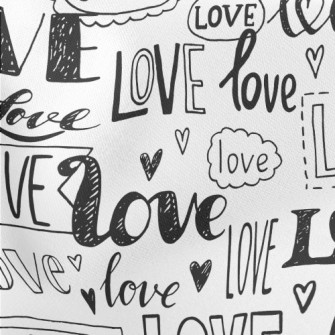 LOVE
LOVE
LOVE
love
love
love
LOVE
love
LOVE
love
love
LOVE